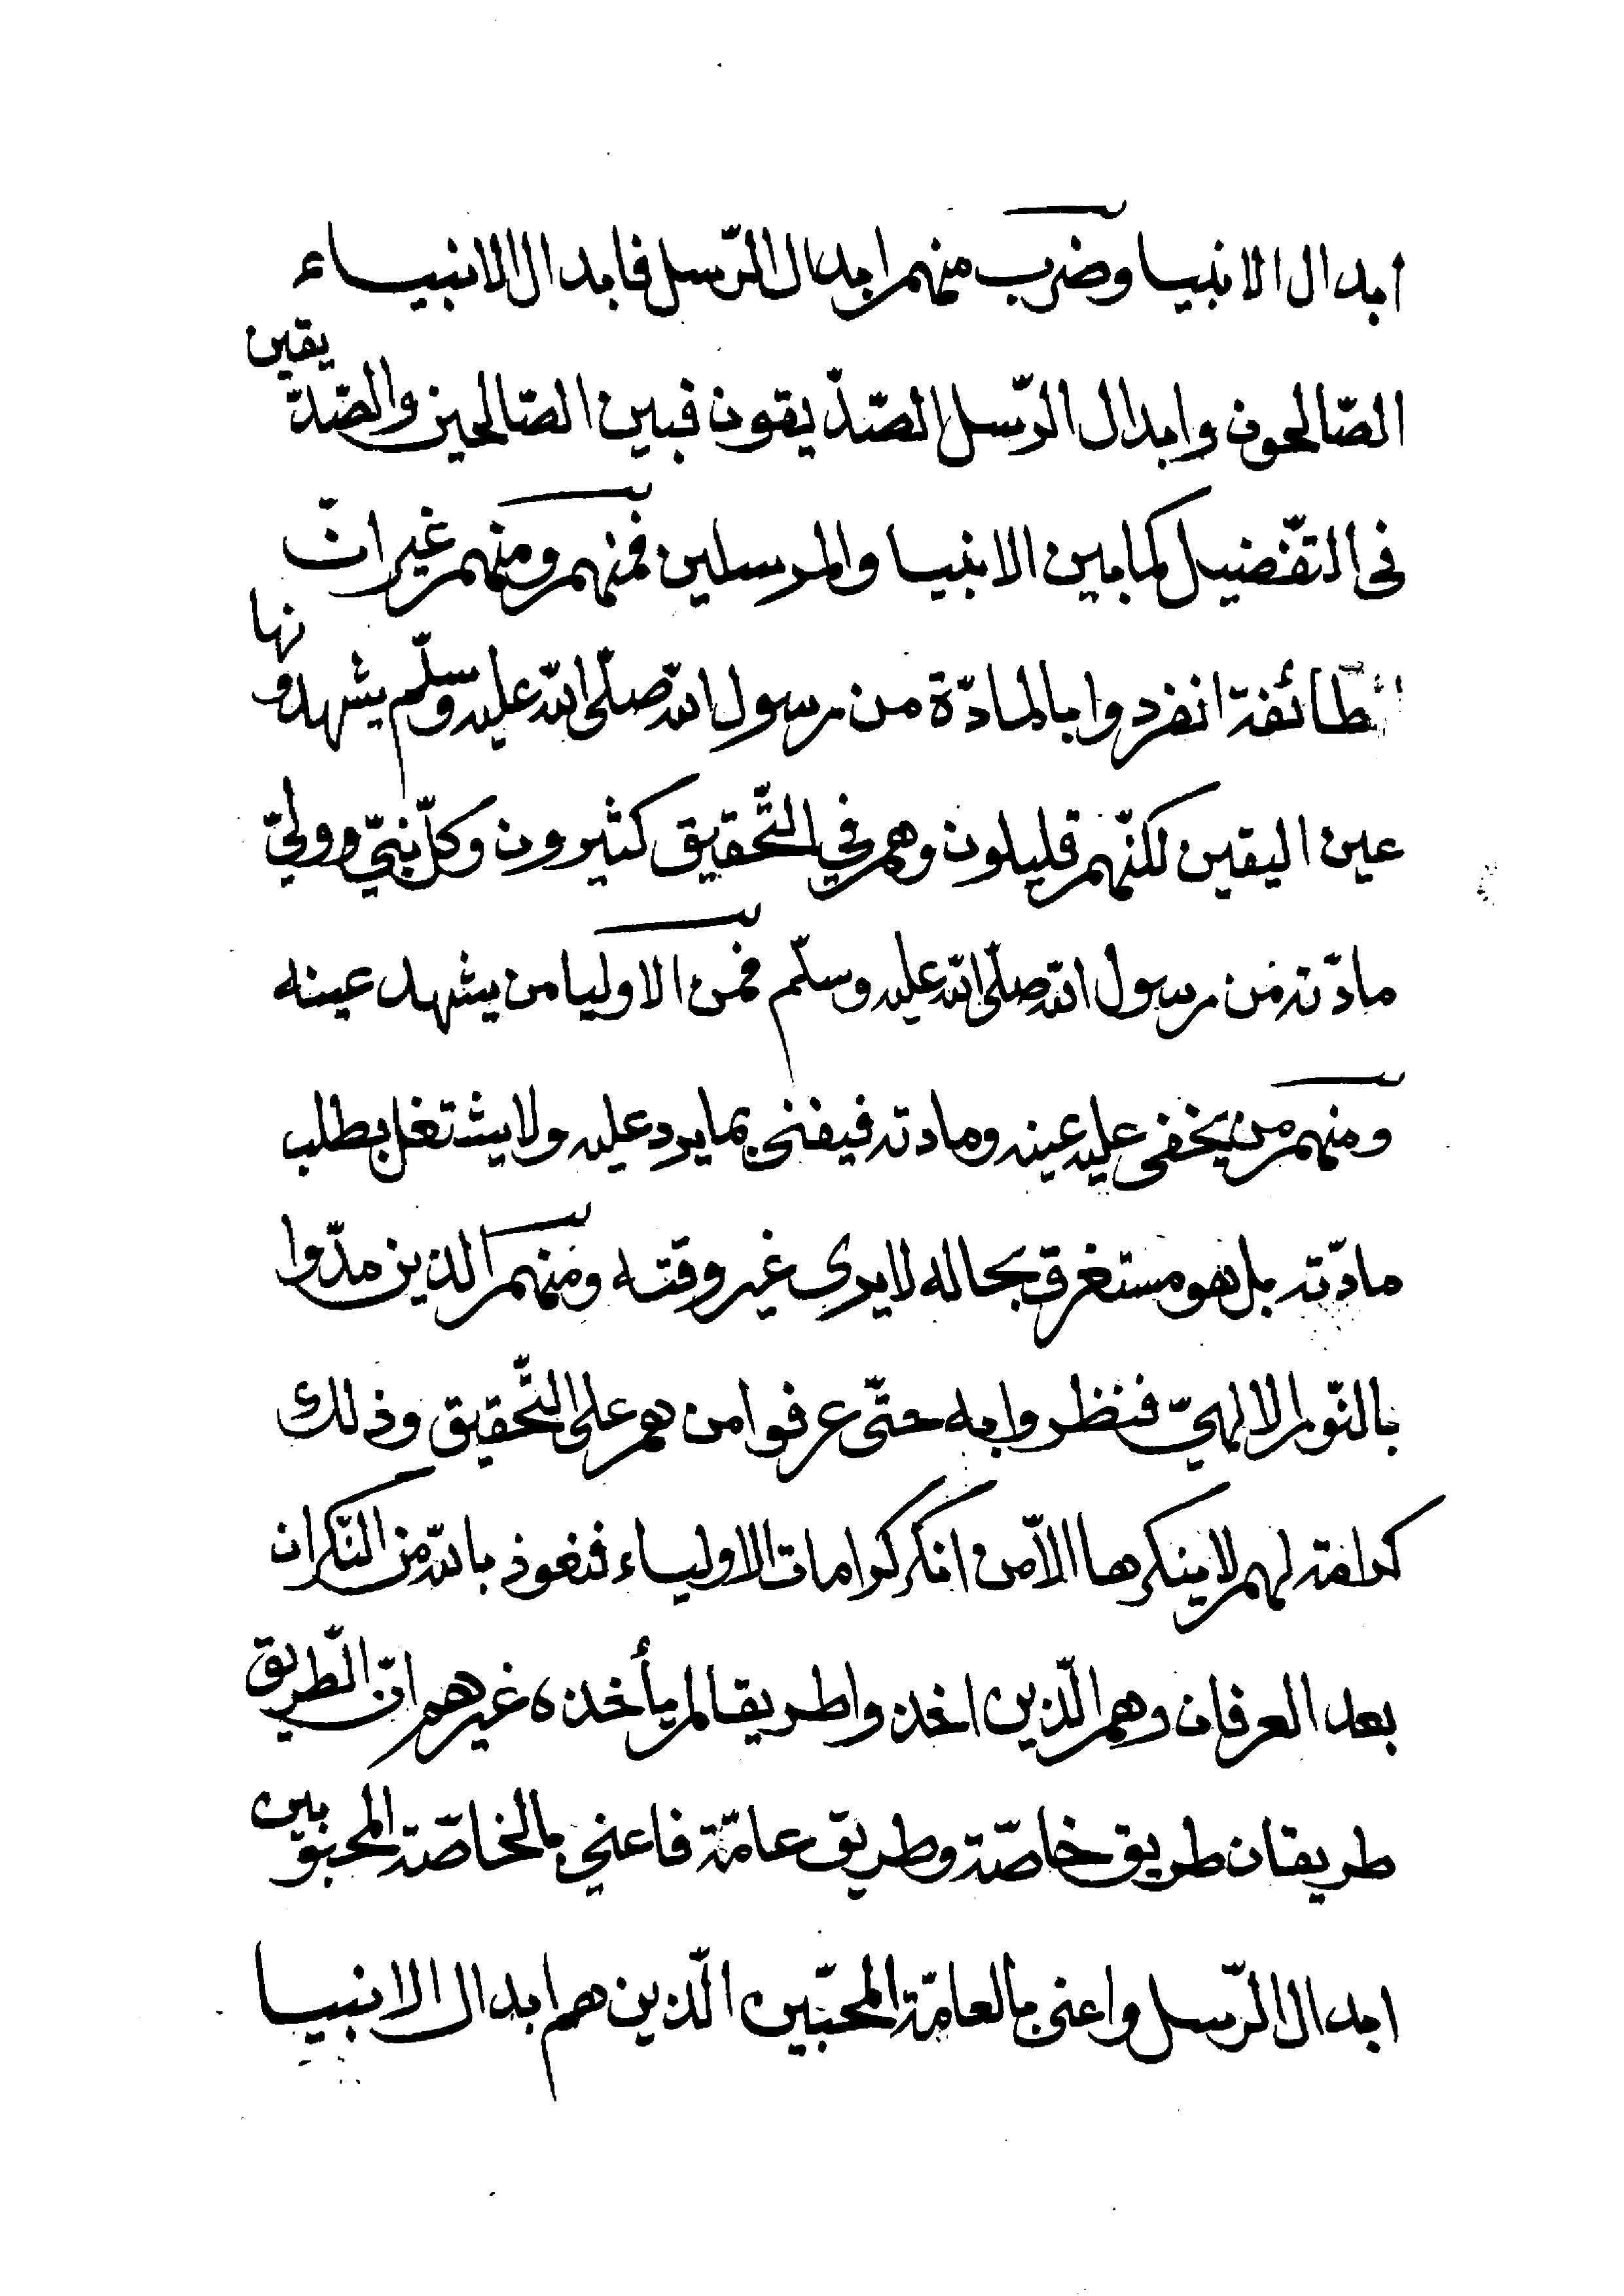 ابدال الانبيا وضرب منهم ابدال الرّسل فابدال الانبيـاء
الصّالحون وابدال الرّسل الصّدّيقون فبين الصّالحين والصّدّيقين
فى التّفضيل كما بين الانبيا والمرسلين فمنهم ومنهم غير انّ
الطّائفة انفردوا بالمادّة من رسول الله صلّى الله عليه وسلّم يشهدونها
عين اليقين لكنّهم قليلون وهم في التّحقيق كثيرون وكلّ نبيّ ووليّ
مادّته من رسول الله صلّى الله عليه وسلّم فمن الاوليا من يشهد عينه
ومنهم من يخفى عليه عينه ومادته فيفنى بما يرد عليه ولا يشتغل بطلب
مادّته بل هو مستغرق بحاله لا يرى غير وقته ومنهم الذين مدّوا
بالنّور الالهيّ فنظروا به حتّى عرفوا من هم على التّحقيق وذلك
كرامة لهم لا ينكرها الاّ من انكر كرامات الاولياء فنعوذ بالله من النّكران
بعد العرفان وهم الّذين اخذوا طريقا لم يأخذه غيرهم انّ الطّريق
طريقان طريق خاصّة وطريق عامّة فاعني بالخاصّة المحبوبين
ابدال الرّسل واعنى بالعامّة المحبّين الّذين هم ابدال الانبيـا